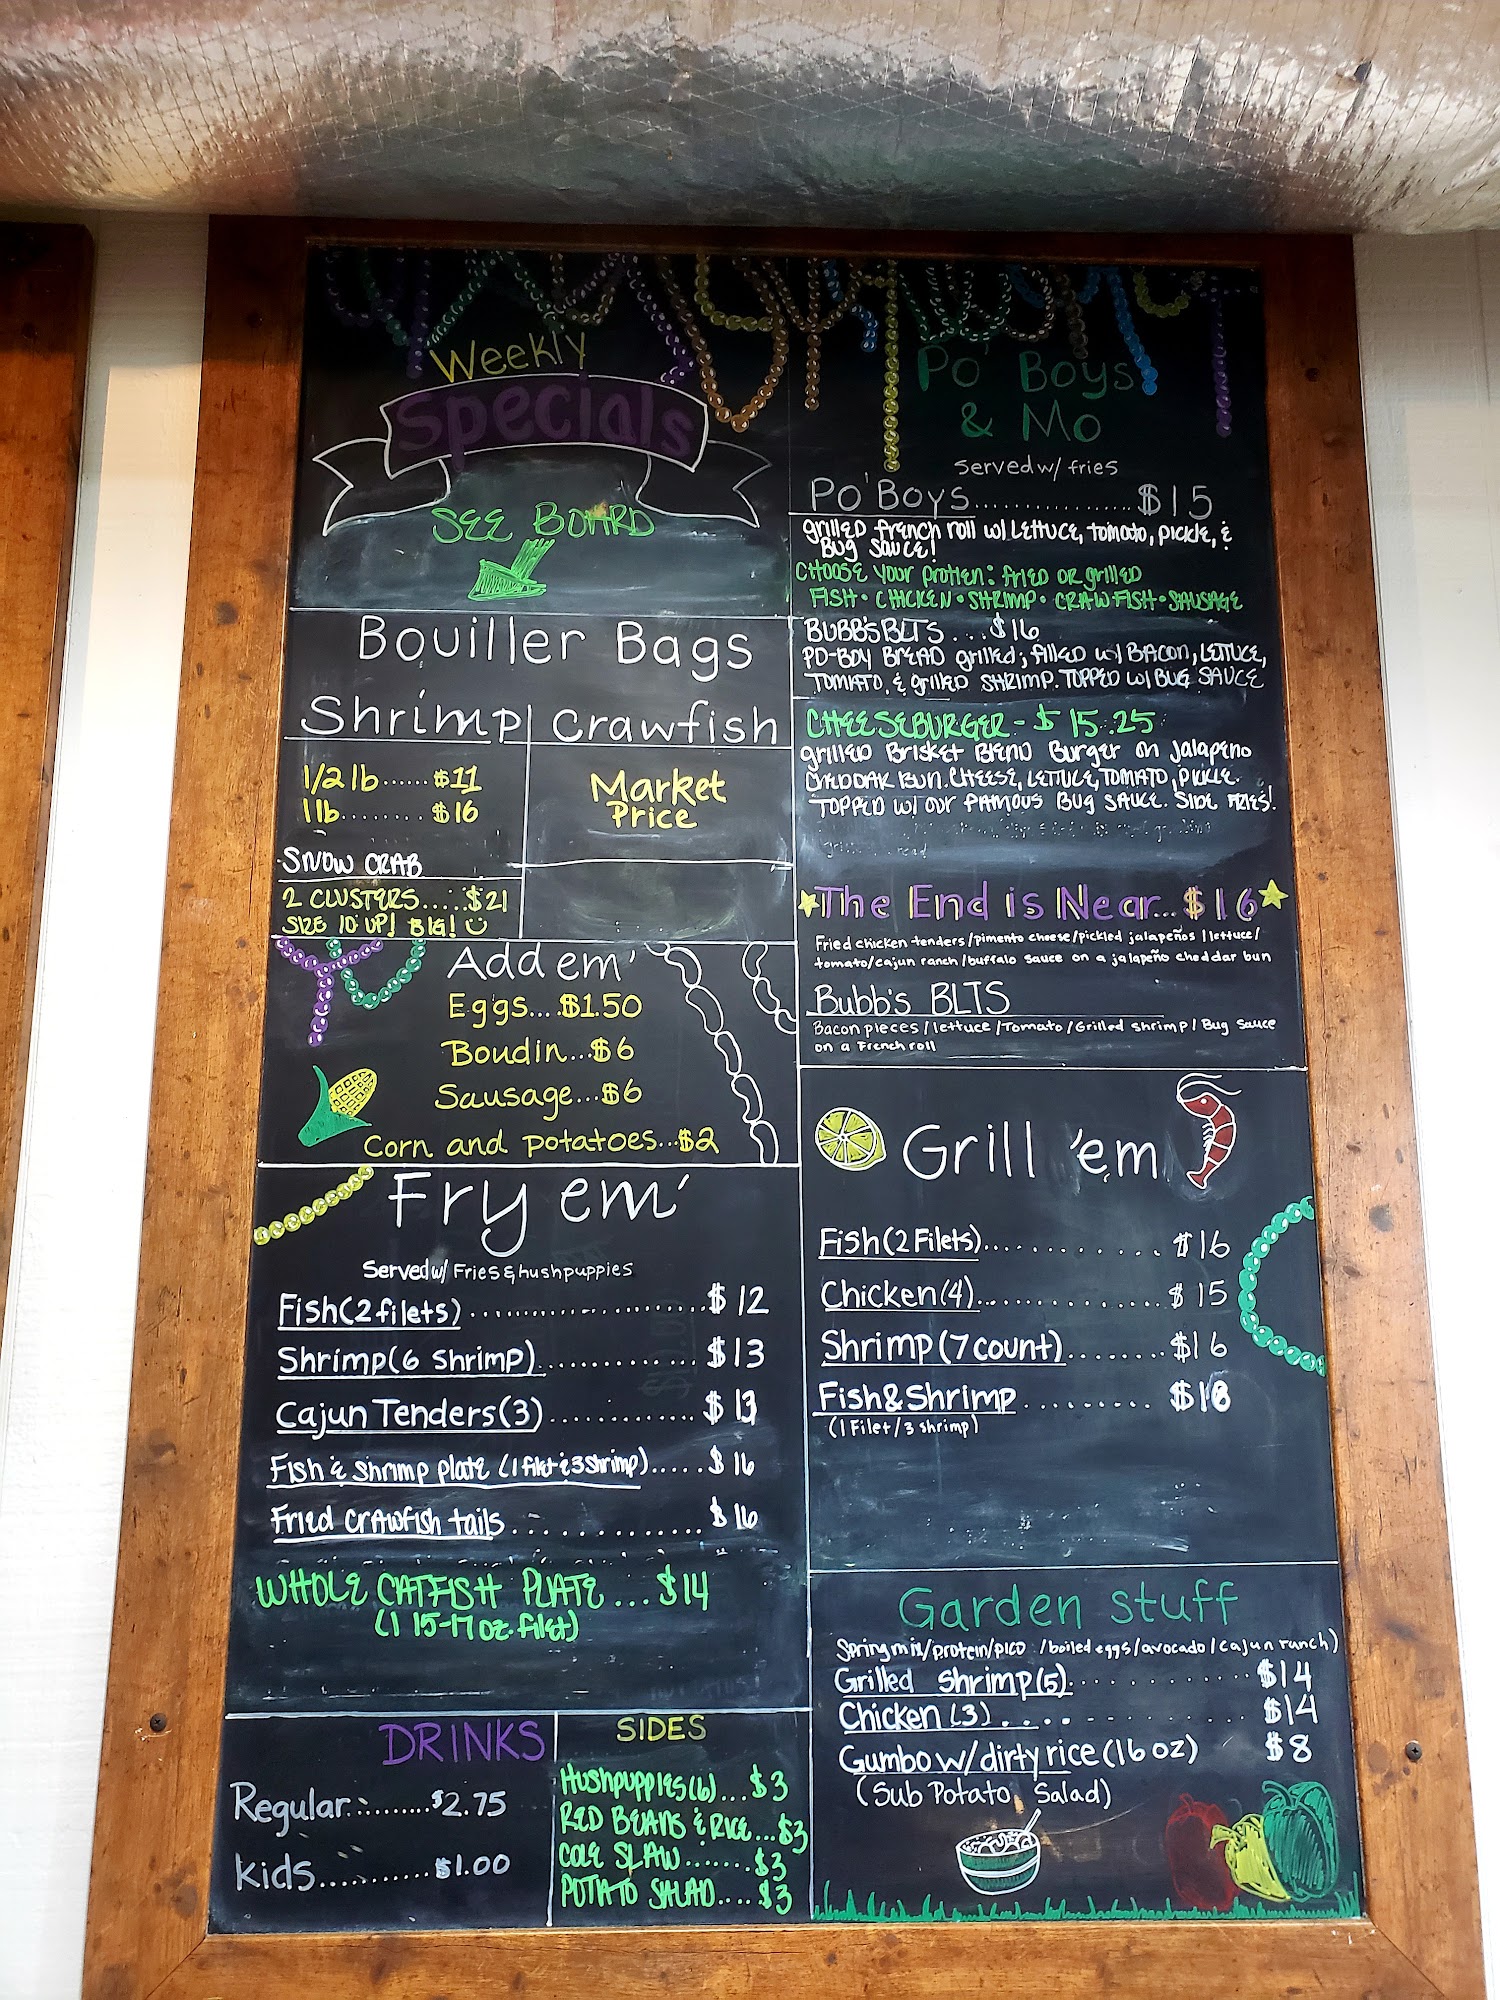 Weekly
Specials
SEE BOARD
Bouiller Bags
Shrimp
1/2 lb...... $11
1 lb........ $16
SNOW CRAB
2 CLUSTERS.....$21
SIZE 10 UP! BIG!
Crawfish
Market
Price
Add em'
Eggs... $1.50
Boudin...$6
Sausage...$6
Corn and potatoes...$2
Fry em'
Served w/ Fries & hushpuppies
Fish(2 filets)......................$12
Shrimp(6 shrimp)..............$13
Cajun Tenders(3).............$13
Fish & Shrimp plate (1 filet & 3 Shrimp).....$16
Fried crawfish tails.............$16
WHOLE CATFISH PLATE...$14
(1 15-17 oz. filet)
DRINKS
Regular.........$2.75
kids...........$1.00
SIDES
Hushpuppies(6)...$3
RED BEANS & RICE...$3
COLE SLAW.......$3
POTATO SALAD....$3
Po' Boys
& Mo
Served w/ fries
Po'Boys.................$15
grilled french roll w/ LETTUCE, tomato, pickle, &
Bug Sauce!
CHOOSE your protien: fried or grilled
FISH • CHICKEN • SHRIMP • CRAWFISH • SAUSAGE
BUBB'S BLTS...$16
PO-BOY BREAD grilled; filled w/ BACON, LETTUCE,
TOMATO, & grilled SHRIMP. TOPPED w/ BUG SAUCE
CHEESEBURGER - $15.25
grilled Brisket Blend Burger on Jalapeno
CHEDDAR BUN. CHEESE, LETTUCE, TOMATO, PICKLE.
TOPPED w/ our FAMOUS BUG SAUCE. SIDE FRIES!
The End is Near...$16
Fried chicken tenders/pimento cheese/pickled jalapeños/lettuce/
tomato/cajun ranch/buffalo sauce on a jalapeño cheddar bun
Bubb's BLTS
Bacon pieces/lettuce/Tomato/Grilled shrimp/Bug sauce
on a French roll
Grill 'em
Fish(2 Filets)..............$16
Chicken(4)................$15
Shrimp(7 count)........$16
Fish&Shrimp.........$18
(1 Filet/3 shrimp)
Garden stuff
Spring mix/protein/pico /boiled eggs/avocado/cajun ranch)
Grilled Shrimp(5)..............$14
Chicken(3)................$14
Gumbo w/dirty rice(16 oz) $8
(Sub Potato Salad)